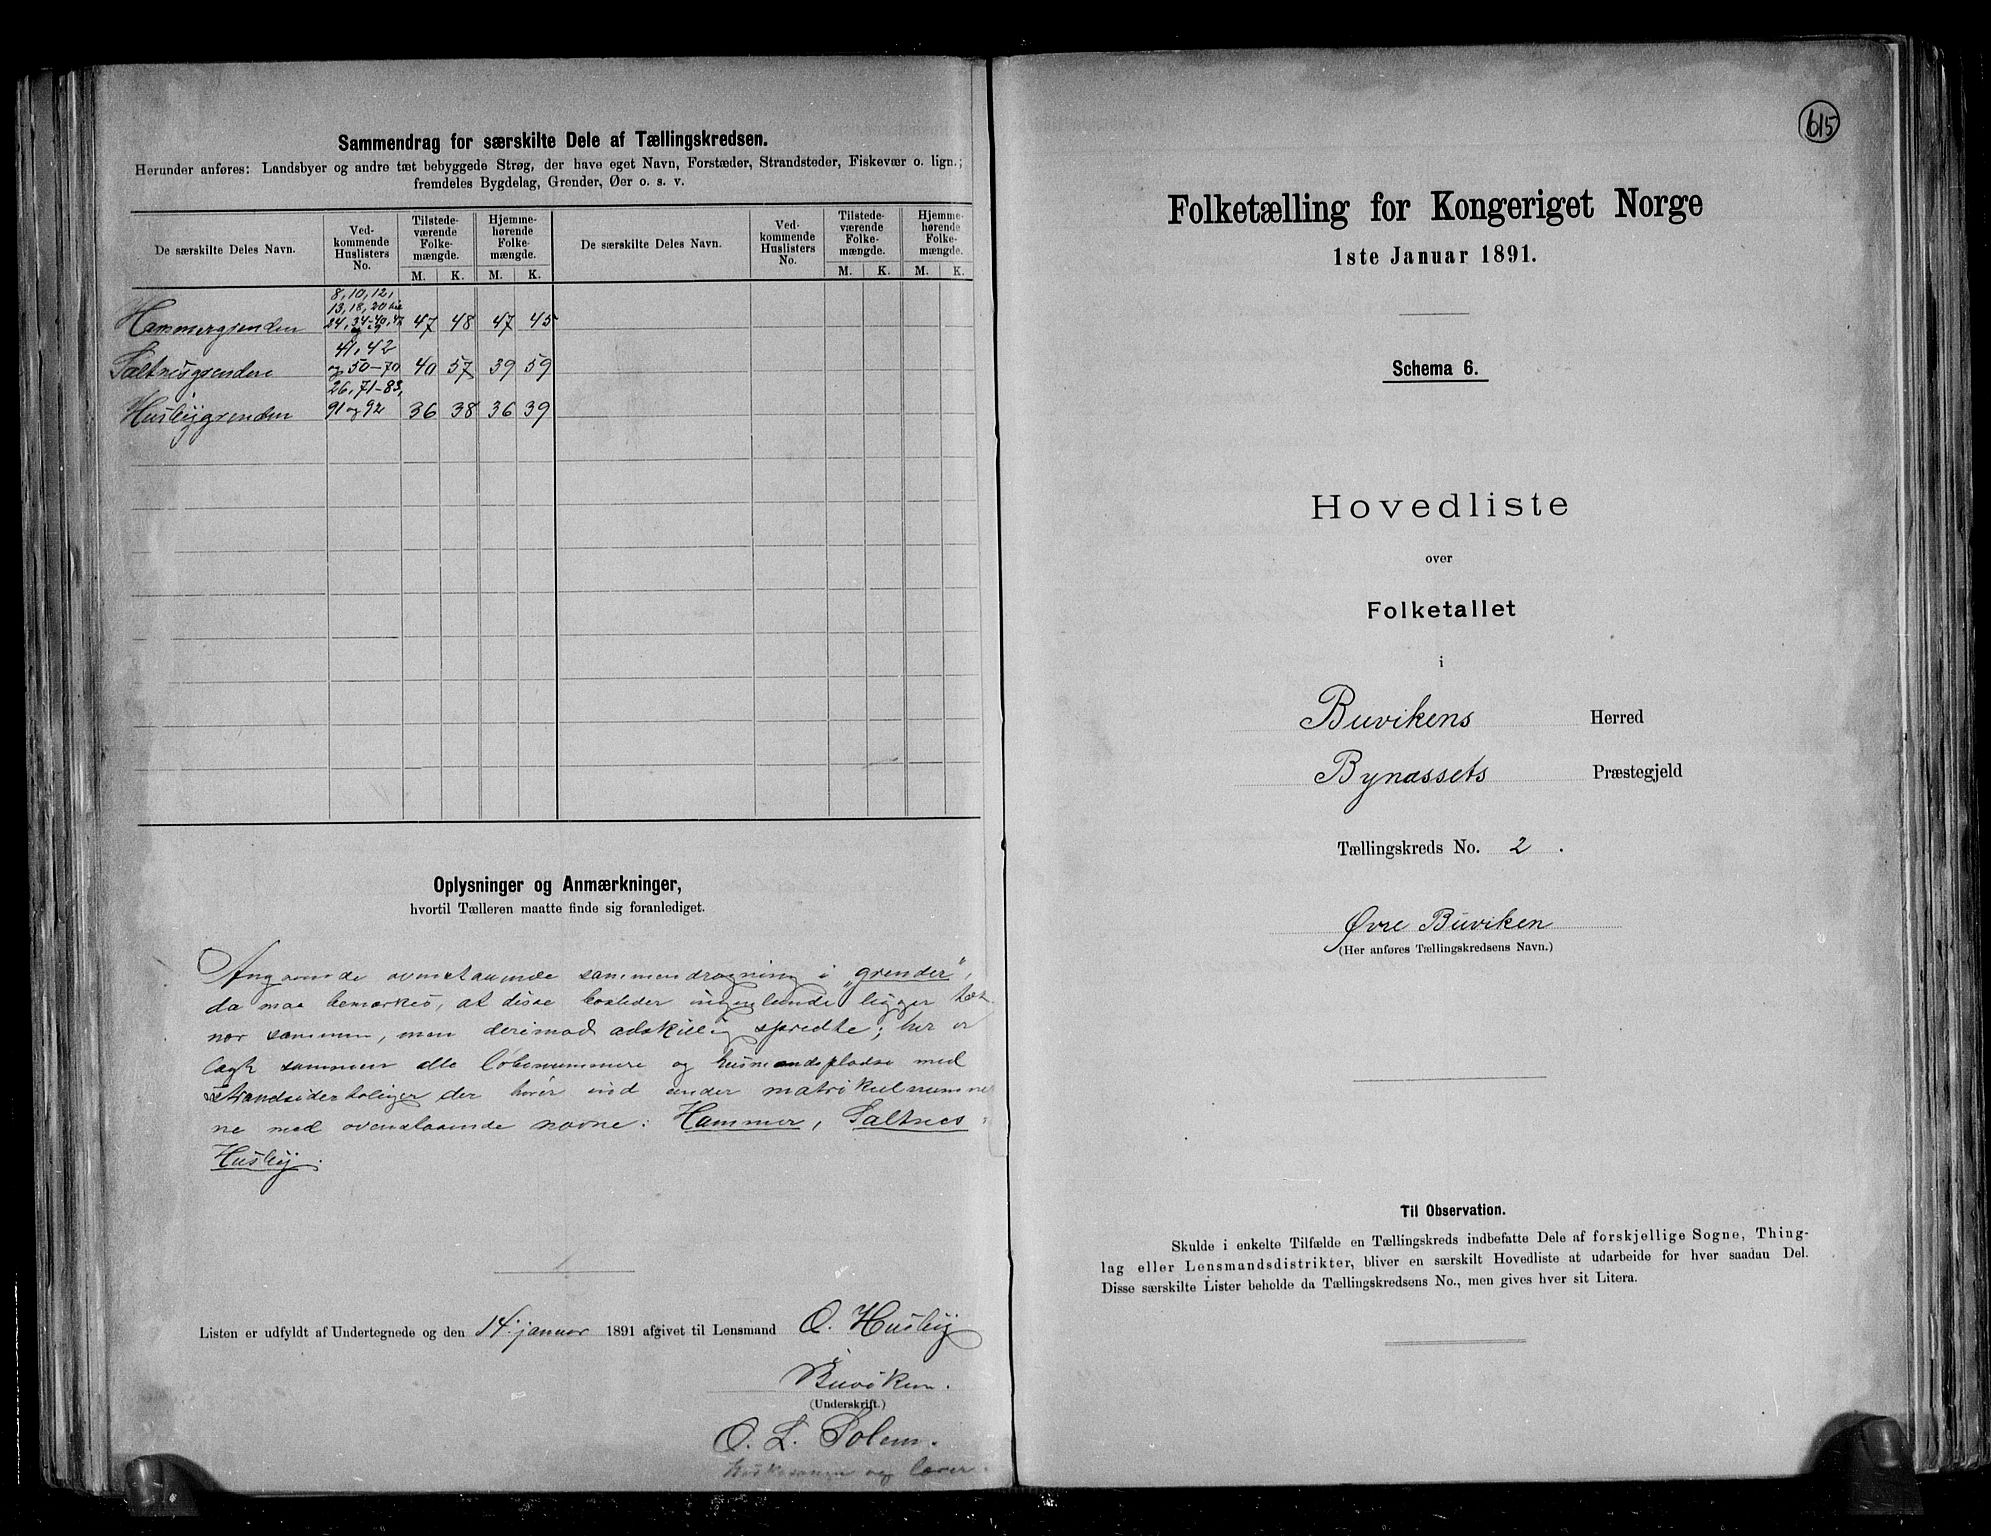 Sammendrag for særskilte Dele af Tællingskredsen.
Herunder anføres: Landsbyer og andre tæt bebyggede Strøg, der have eget Navn, Forstæder, Strandsteder, Fiskevær o. lign.;
fremdeles Bygdelag, Grender, Øer o. s. v.
De særskilte Deles Navn. Ved-kommende Huslisters No. Tilstede-værende Folke-mængde. Hjemme-hørende Folke-mængde. De særskilte Deles Navn. Ved-kommende Huslisters No. Tilstede-værende Folke-mængde. Hjemme-hørende Folke-mængde.
M. K. M. K. M. K. M. K.
8, 10, 12,
13, 18, 20 til
Hammergrenden 24, 34-40, 47 48 47 45
41, 42
Saltnesgrenden og 50-70 40 57 39 59
26, 71-83,
Husbygrenden 91 og 92 36 38 36 39
Oplysninger og Anmærkninger,
hvortil Tælleren maatte finde sig foranlediget.
Angaaende ovenstaaende sammendragning i "grender",
da maa bemærkes, at disse bosteder ingenlunde ligger
sammen, men derimod adskillig spredte; her er
lagt sammen alle løbenummere og husmandspladse med
strandsiderboliger der hører ind under matrikulnumme
ne med ovenstaaende navne: Hammer, Saltnes
Husby.
Listen er udfyldt af Undertegnede og den 14. januar 1891 afgivet til Lensmand O. Husby
Buviken.
(Underskrift.)
O. L. Solem.
og lærer.
615
Folketælling for Kongeriget Norge
1ste Januar 1891.
Schema 6.
Hovedliste
over
Folketallet
i
Buvikens Herred
Bynæssets Præstegjeld
Tællingskreds No. 2.
Øvre Buviken
(Her anføres Tællingskredsens Navn.)
Til Observation.
Skulde i enkelte Tilfælde en Tællingskreds indbefatte Dele af forskjellige Sogne, Thing-
lag eller Lensmandsdistrikter, bliver en særskilt Hovedliste at udarbeide for hver saadan Del.
Disse særskilte Lister beholde da Tællingskredsens No., men gives hver sit Litera.